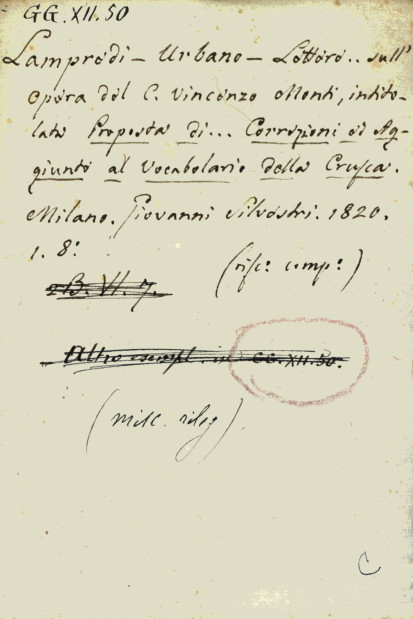 GG. XII. 50
Lampredi - Urbano - Lettere.. sull'
opera del C. Vincenzo Monti, intito-
lata Proposta di... Correzioni ed Ag-
giunte al Vocabolario della Crusca.
Milano. Giovanni Silvestri. 1820.
1. 8.°
(risc.° comp.°)
B. VI. 7.
Altro esempl. in GG. XII. 50.
(misc. rileg)
C